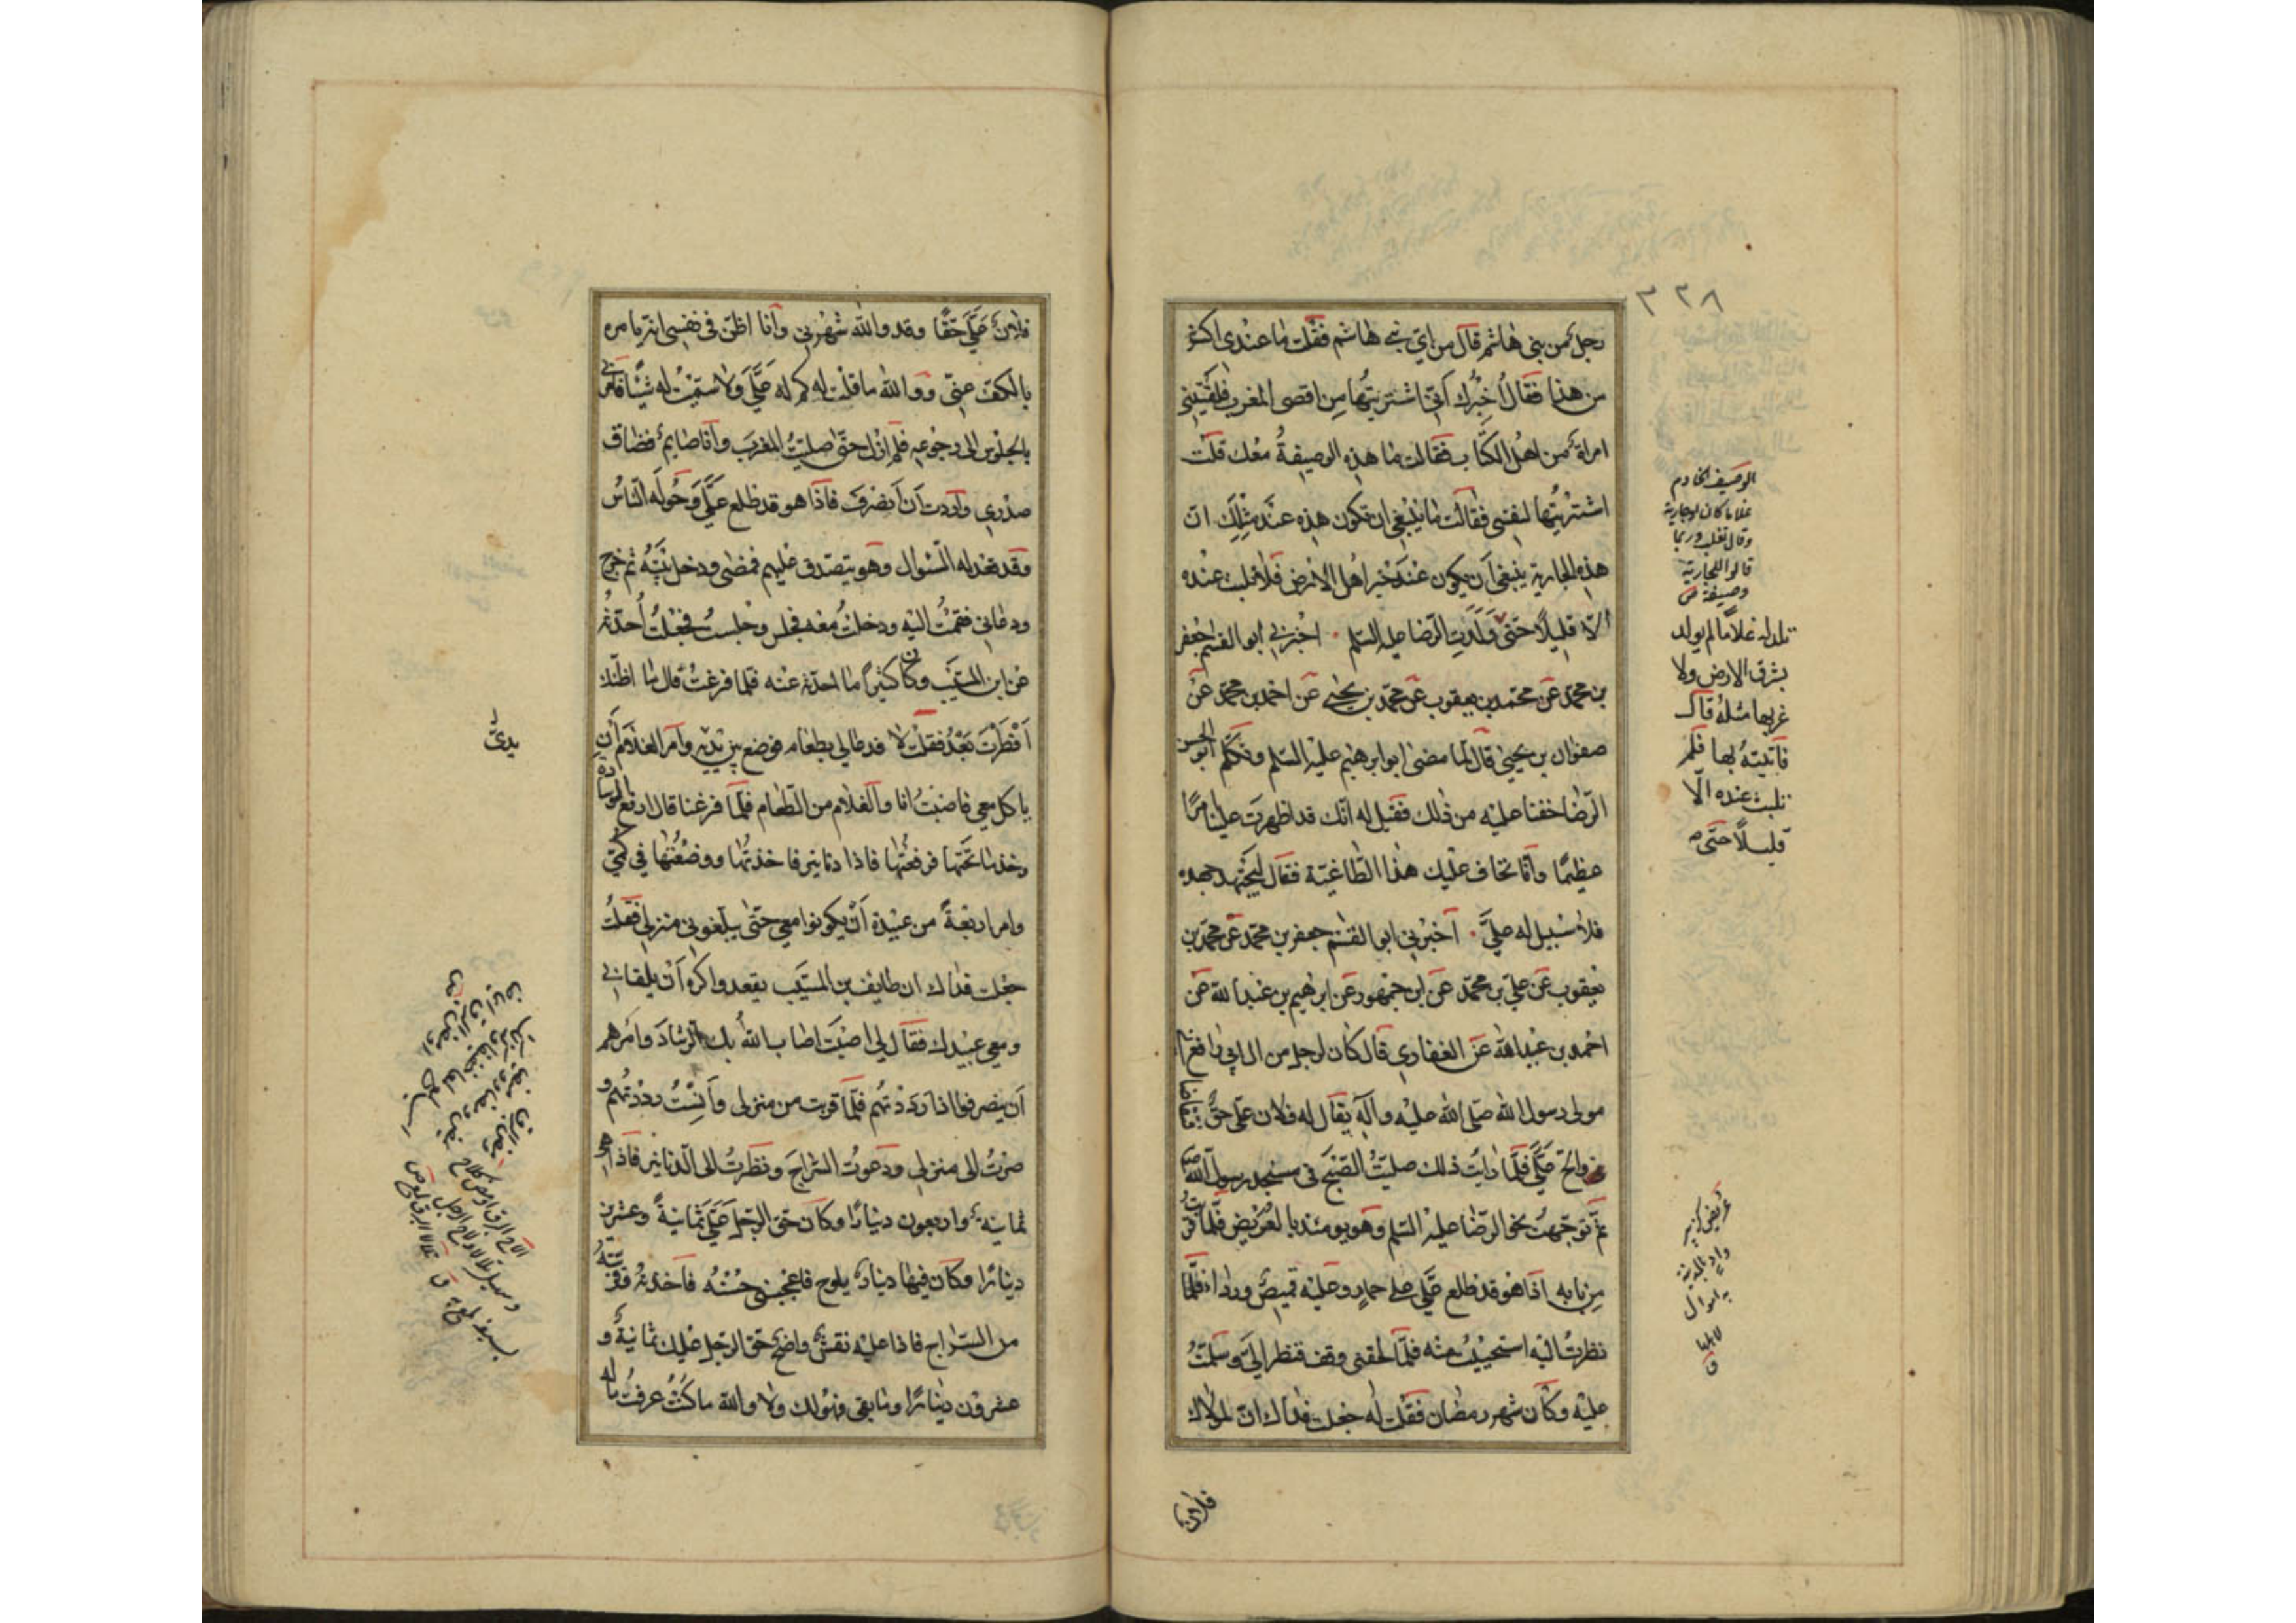 ٣٢٨
رجل من بني هاشم قال من اي بني هاشم فقلت ما عندي اكثر
من هذا فقال اخبرك اني اشتريتها من اقصى المغرب فلقيتني
امراة من اهل الكتاب فقالت ما هذه الوصيفة معك قلت
اشتريتها لنفسي فقالت ما ينبغي ان تكون هذه عند مثلك ان
هذه الجارية ينبغي ان يكون عند خير اهل الارض فلا تلبث عنده
الا قليلا حتى ولدت الرضا عليه السلم اخبرني ابو القسم جعفر
بن محمد عن محمد بن يعقوب عن محمد بن يحيى عن احمد بن محمد عن
صفوان بن يحيى قال لما مضى ابو ابرهيم عليه السلم وتكلم ابو الحسن
الرضا خفنا عليه من ذلك فقيل له انك قد اظهرت امرا
عظيما وانا نخاف عليك هذا الطاغية فقال ليجتهد جهده
فلا سبيل له علي اخبرني ابو القسم جعفر بن محمد عن محمد بن
يعقوب عن علي بن محمد عن ابن جمهور عن ابرهيم بن عبد الله عن
احمد بن عبيد الله عن الغفاري قال كان لرجل من ال ابي رافع
مولى رسول الله صلى الله عليه وآله يقال له فلان علي حق فتقاضاني
والح علي فلما رايت ذلك صليت الصبح في مسجد رسول الله ص
ثم توجهت نحو الرضا عليه السلم وهو يومئذ بالعريض فلما قربت
من بابه اذا هو قد طلع علي على حمار وعليه قميص ورداء فلما
نظرت اليه استحييت منه فلما لحقني وقف فنظر الي وسلمت
عليه وكان شهر رمضان فقلت له جعلت فداك ان لمولاك
فلان
الوصيف الخادم
غلاما كان او جارية
وقال ثعلب وربما
قالوا للجارية
وصيفة ص
تلد له غلاما لم يولد
بشرق الارض ولا
غربها مثله قال
فاتيته بها فلم
تلبث عنده الا
قليلا حتى
عريض كزبير
واد بالمدينة
به اموال
لاهلها
ق
فلان علي حقا وقد والله شهرني وانا اظن في نفسي انه يامره
بالكف عني ووالله ما قلت له كم له علي ولا سميت له شيئا فامرني
بالجلوس الى رجوعه فلم ازل حتى صليت المغرب وانا صايم فضاق
صدري واردت ان انصرف فاذا هو قد طلع علي وحوله الناس
وقد قعد له السؤال وهو يتصدق عليهم فمضى ودخل بيته ثم خرج
ودعاني فقمت اليه ودخلت معه فجلس وجلست فجعلت احدثه
عن ابن المسيب وكان كثيرا ما احدثه عنه فلما فرغت قال ما اظنك
افطرت بعد فقلت لا فدعا لي بطعام فوضع بين يديه وامر الغلام ان
ياكل معي فاصبت انا والغلام من الطعام فلما فرغنا قال ارفع الوسادة
وخذ ما تحتها فرفعتها فاذا دنانير فاخذتها ووضعتها في كمي
وامر اربعة من عبيده ان يكونوا معي حتى يبلغوني منزلي فقلت
جعلت فداك ان طايف بن المسيب يقعد واكره ان يلقاني
ومعي عبيدك فقال لي اصبت اصاب الله بك الرشاد وامرهم
ان ينصرفوا اذا رددتهم فلما قربت من منزلي وانست رددتهم و
صرت الى منزلي ودعوت السراج ونظرت الى الدنانير فاذا هي
ثمانية واربعون دينارا وكان حق الرجل علي ثمانية وعشرين
دينارا وكان فيها دينار يلوح فاعجبني حسنه فاخذته وقربته
من السراج فاذا عليه نقش واضح حق الرجل عليك ثمانية و
عشرون دينارا وما بقي فهو لك ولا والله ما كنت عرفت ما له
يدي